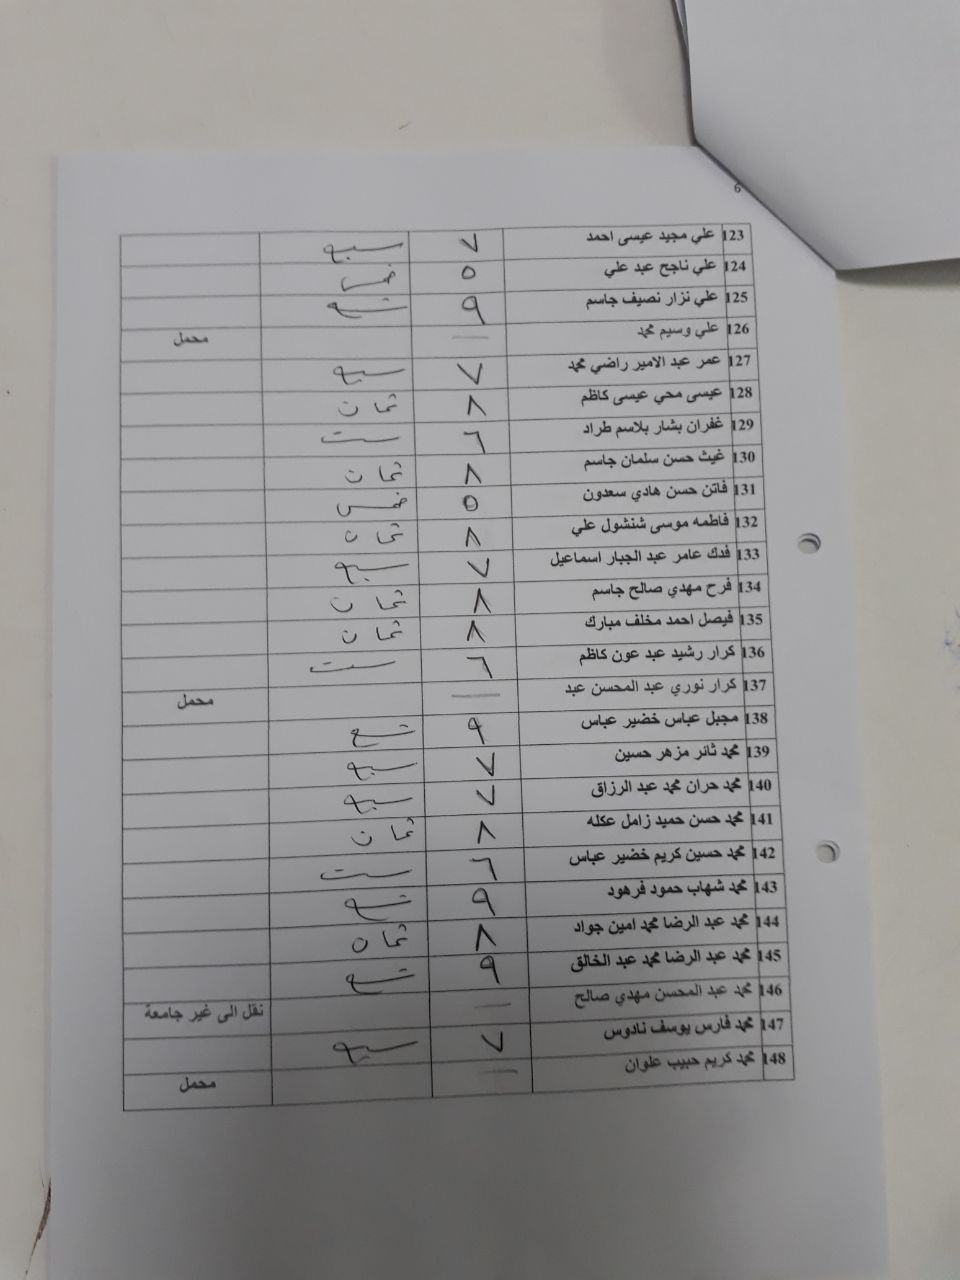 6
123 علي مجيد عيسى احمد ٧ سبع
124 علي ناجح عبد علي ٥ خمس
125 علي نزار نصيف جاسم ٩ تسع
126 علي وسيم محمد — محمل
127 عمر عبد الامير راضي محمد ٧ سبع
128 عيسى محي عيسى كاظم ٨ ثمان
129 غفران بشار بلاسم طراد ٦ ست
130 غيث حسن سلمان جاسم ٨ ثمان
131 فاتن حسن هادي سعدون ٥ خمس
132 فاطمه موسى شنشول علي ٨ ثمان
133 فدك عامر عبد الجبار اسماعيل ٧ سبع
134 فرح مهدي صالح جاسم ٨ ثمان
135 فيصل احمد مخلف مبارك ٨ ثمان
136 كرار رشيد عبد عون كاظم ٦ ست
137 كرار نوري عبد المحسن عبد — محمل
138 مجبل عباس خضير عباس ٩ تسع
139 محمد ثائر مزهر حسين ٧ سبع
140 محمد حران محمد عبد الرزاق ٧ سبع
141 محمد حسن حميد زامل عكله ٨ ثمان
142 محمد حسين كريم خضير عباس ٦ ست
143 محمد شهاب حمود فرهود ٩ تسع
144 محمد عبد الرضا محمد امين جواد ٨ ثمان
145 محمد عبد الرضا محمد عبد الخالق ٩ تسع
146 محمد عبد المحسن مهدي صالح — نقل الى غير جامعة
147 محمد فارس يوسف نادوس ٧ سبع
148 محمد كريم حبيب علوان — محمل